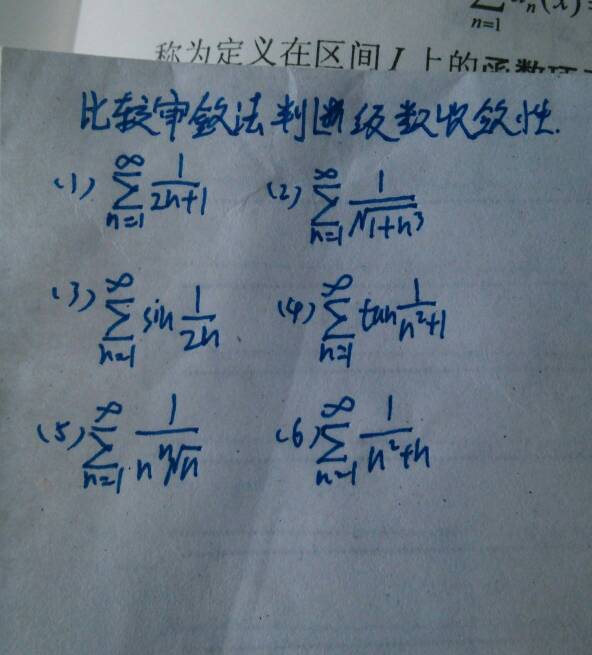 ∑ uₙ(x)
n=1
称为定义在区间 I 上的函数项
比较审敛法判断级数收敛性.
(1) ∑_{n=1}^{∞} 1/(2n+1) (2) ∑_{n=1}^{∞} 1/√(1+n³)
(3) ∑_{n=1}^{∞} sin 1/(2n) (4) ∑_{n=1}^{∞} tan 1/(n²+1)
(5) ∑_{n=1}^{∞} 1/(n ⁿ√n) (6) ∑_{n=1}^{∞} 1/(n²+n)